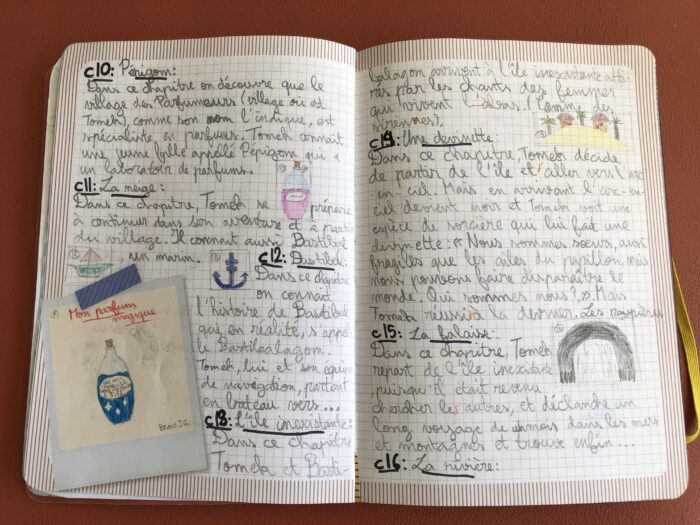 C10: Pépigom:
Dans ce chapitre on découvre que le
village des Parfumeurs (village où est
Tomek), comme son nom l'indique, est
spécialiste en parfums. Tomek connait
une jeune fille appellé Pépigom qui a
un laboratoir de parfums.
C11: La neige:
Dans ce chapitre, Tomek se prépare
à continuer dans son aventure et à partir
du village. Il connait aussi Bastibal
, un marin.
C12: Bastibal:
Dans ce chapitre
on connait
l'histoire de Bastibal
que, en réalité, s'appel
le Bastibalagom.
Tomek, lui et son équipe
de navegation, partent
en bateau vers...
C13: L'île inexistante:
Dans ce chapitre
Tomek et Basti-
Mon parfum
magique
balagom arrivent à l'île inexistante atti-
rés par les chants des femmes
qui vivent là-bas! (Comme des
sirennes).
C14: Une devinette:
Dans ce chapitre, Tomek décide
de partir de l'île et aller vers l'arc
en-ciel. Mais en arrivant l'arc-en-
ciel devient noir et Tomek voit une
espèce de sorcière qui lui fait une
devinette: « Nous sommes soeurs, aussi
fragiles que les ailes du papillon, mais
nous pouvons faire disparaître le
monde. Qui sommes nous?» Mais
Tomek réussi à la deviner. Les paupières
C15: La falaise:
Dans ce chapitre, Tomek
repart de l'île inexistante
, puisqu'il était revenu
chercher les autres, et déclanche un
long voyage de mois dans les mers
et montagnes et trouve enfin...
C16: La rivière: